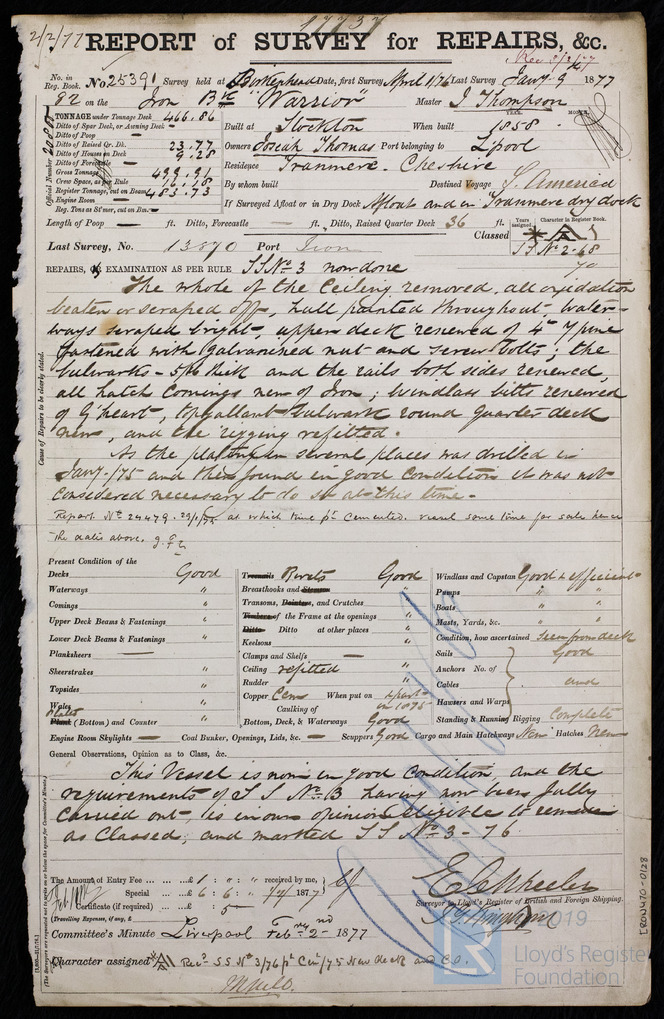 17737
2/2/77 REPORT of SURVEY for REPAIRS, &c.
Rec 3/2/77
No. in Reg. Book. No. 25391 Survey held at Birkenhead Date, first Survey April 1/76 Last Survey Jany. 9 1877
92 on the Iron Bk "Warrior" Master J. Thompson
TONNAGE under Tonnage Deck 466.86
Ditto of Spar Deck, or Awning Deck
Ditto of Poop
Ditto of Raised Qr. Dk. 23.77
Ditto of Houses on Deck 9.28
Ditto of Forecastle
Gross Tonnage 499.91
Crew Space, as per Rule 16.18
Register Tonnage, cut on Beam 483.73
Engine Room
Reg. Tons as St'mer, cut on Bm.
Official Number
YEAR. MONTH.
Built at Stockton When built 1858
Owners Josiah Thomas Port belonging to Lpool
Residence Tranmere. Cheshire
By whom built Destined Voyage S. America
If Surveyed Afloat or in Dry Dock Afloat and in Tranmere dry dock
Length of Poop — ft. Ditto, Forecastle — ft., Ditto, Raised Quarter Deck 36 ft.
Classed Years assigned Character in Register Book. A
SS No 2-68
Last Survey, No. 13870 Port Iron
REPAIRS, or EXAMINATION AS PER RULE SS No. 3 now done
The whole of the Ceiling removed, all oxidation
beaten or scraped off, hull painted throughout, water-
ways scraped bright, upper deck renewed of 4" y pine
fastened with Galvanised nut and screw bolts, the
bulwarks - 5/16 thick and the rails both sides renewed,
all hatch Comings new of Iron; windlass bitts renewed
of G'heart, topgallant bulwark round quarter deck
new, and the rigging refitted.
As the plating in several places was drilled in
Jany./75 and then found in good condition it was not
considered necessary to do so at this time.
Report No 24479. 29/1/75 at which time pt Cemented. vessel some time for sale hence
the dates above.
Cause of Repairs to be clearly stated.
Present Condition of the
Decks Good
Waterways "
Comings "
Upper Deck Beams & Fastenings "
Lower Deck Beams & Fastenings "
Planksheers —
Sheerstrakes "
Topsides "
Wales "
Plank Plates (Bottom) and Counter "
Engine Room Skylights —
Treenails Rivets Good
Breasthooks and Stemson "
Transoms, Pointers, and Crutches "
Timbers of the Frame at the openings "
Ditto Ditto at other places "
Keelsons "
Clamps and Shelfs —
Ceiling refitted "
Rudder "
Copper Cem When put on 4 part in 1875
Caulking of
Bottom, Deck, & Waterways Good
Coal Bunker, Openings, Lids, &c. — Scuppers Good
Windlass and Capstan Good & efficient
Pumps " "
Boats " "
Masts, Yards, &c. " "
Condition, how ascertained Seen from deck
Sails Good
Anchors No. of
Cables and
Hawsers and Warps
Standing & Running Rigging Complete
Cargo and Main Hatchways New Hatches New
General Observations, Opinion as to Class, &c.
This Vessel is now in good condition, and the
requirements of SS No. 3 having now been fully
carried out is in our opinion eligible to remain
as Classed, and marked SS No. 3-76
The Amount of Entry Fee ... £ 1 : " : " received by me,
Special ... £ 6 : 6 : " 1877
Certificate (if required) : 5
(Travelling Expenses, if any, £
E C Wheeler
Surveyor to Lloyd's Register of British and Foreign Shipping.
Committee's Minute Liverpool Feby 2nd 1877
Character assigned A Recd SS No 3/76 pt Cem/75 New deck and
IRON470-0128
© 2019
LR
Lloyd's Register
Foundation